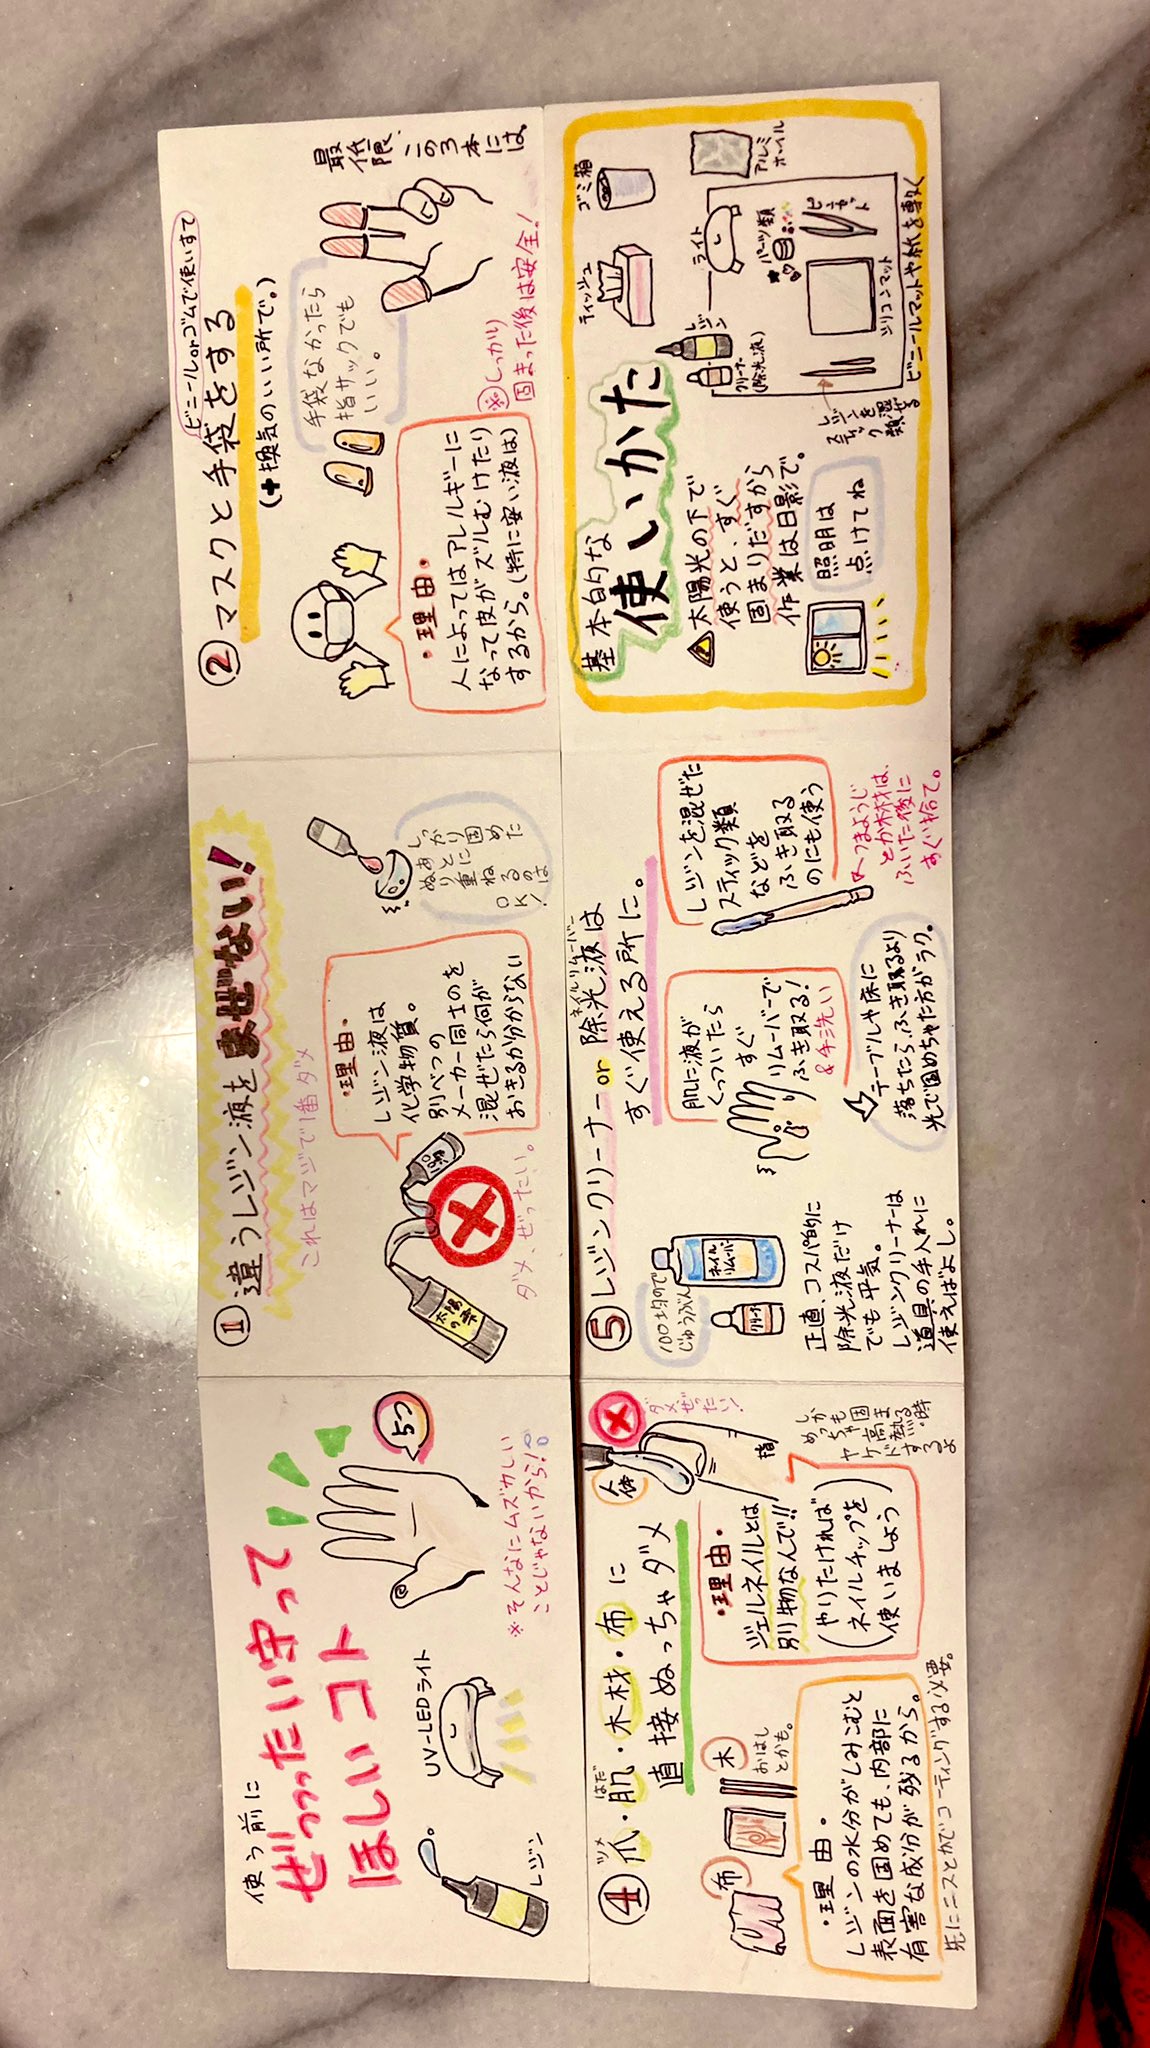 使う前に
ぜっっったい守って
ほしいコト
5つ
UV-LEDライト
レジン
※そんなにムズカしい
ことじゃないから!
① 違うレジン液をまぜない!
これはマジで1番ダメ
・理由・
レジン液は
化学物質。
別べつの
メーカー同士のを
混ぜたら何が
おきるか分からない
ダメ、ぜったい。
しっかり固めた
あとに
ぬり重ねるのは
OK!
ビニールorゴムで使いすて
② マスクと手袋をする
(+換気のいい所で。)
手袋なかったら
指サックでも
いい。
最低限
この3本には。
・理由・
人によってはアレルギーに
なって皮がズルむけたり
するから。(特に安い液は)
※しっかり
固まった後は安全!
④ 爪・肌・木材・布に
ツメ
はだ
直接ぬっちゃダメ
人体
ダメぜったい!
指
布
木
おはし
とかも。
・理由・
ジェルネイルとは
別物なんで!!
(やりたければ
ネイルチップを
使いましょう)
しかも
めっちゃ固まる時
高熱
ヤケドするよ
・理由・
レジンの水分がしみこむと
表面を固めても、内部に
有害な成分が残るから。
先にニスとかでコーティングする必要。
⑤ レジンクリーナーor除光液は
ネイルリムーバー
すぐ使える所に。
100均ので
じゅうぶん
ネイル
リムーバー
正直、コスパ的に
除光液だけ
でも平気。
レジンクリーナーは
道具の手入れに
使えばよし。
肌に液が
くっついたら
すぐ
リムーバーで
ふき取る!
&手洗い
テーブルや床に
落ちたら、ふき取るより
光で固めちゃた方がラク。
レジンを混ぜた
スティック類
などを
ふき取る
のにも使う
つまようじ
とか木材は、
ふいた後に
すぐ捨て。
基本的な
使いかた
太陽光の下で
使うと、すぐ
固まりだすから
作業は日影で。
照明は
点けてね
ティッシュ
ゴミ箱
アルミ
ホイル
ライト
レジン
クリーナー
(除光液)
パーツ類
ピンセット
シリコンマット
レジンを混ぜる
スティック類
ビニールマットや紙を敷く